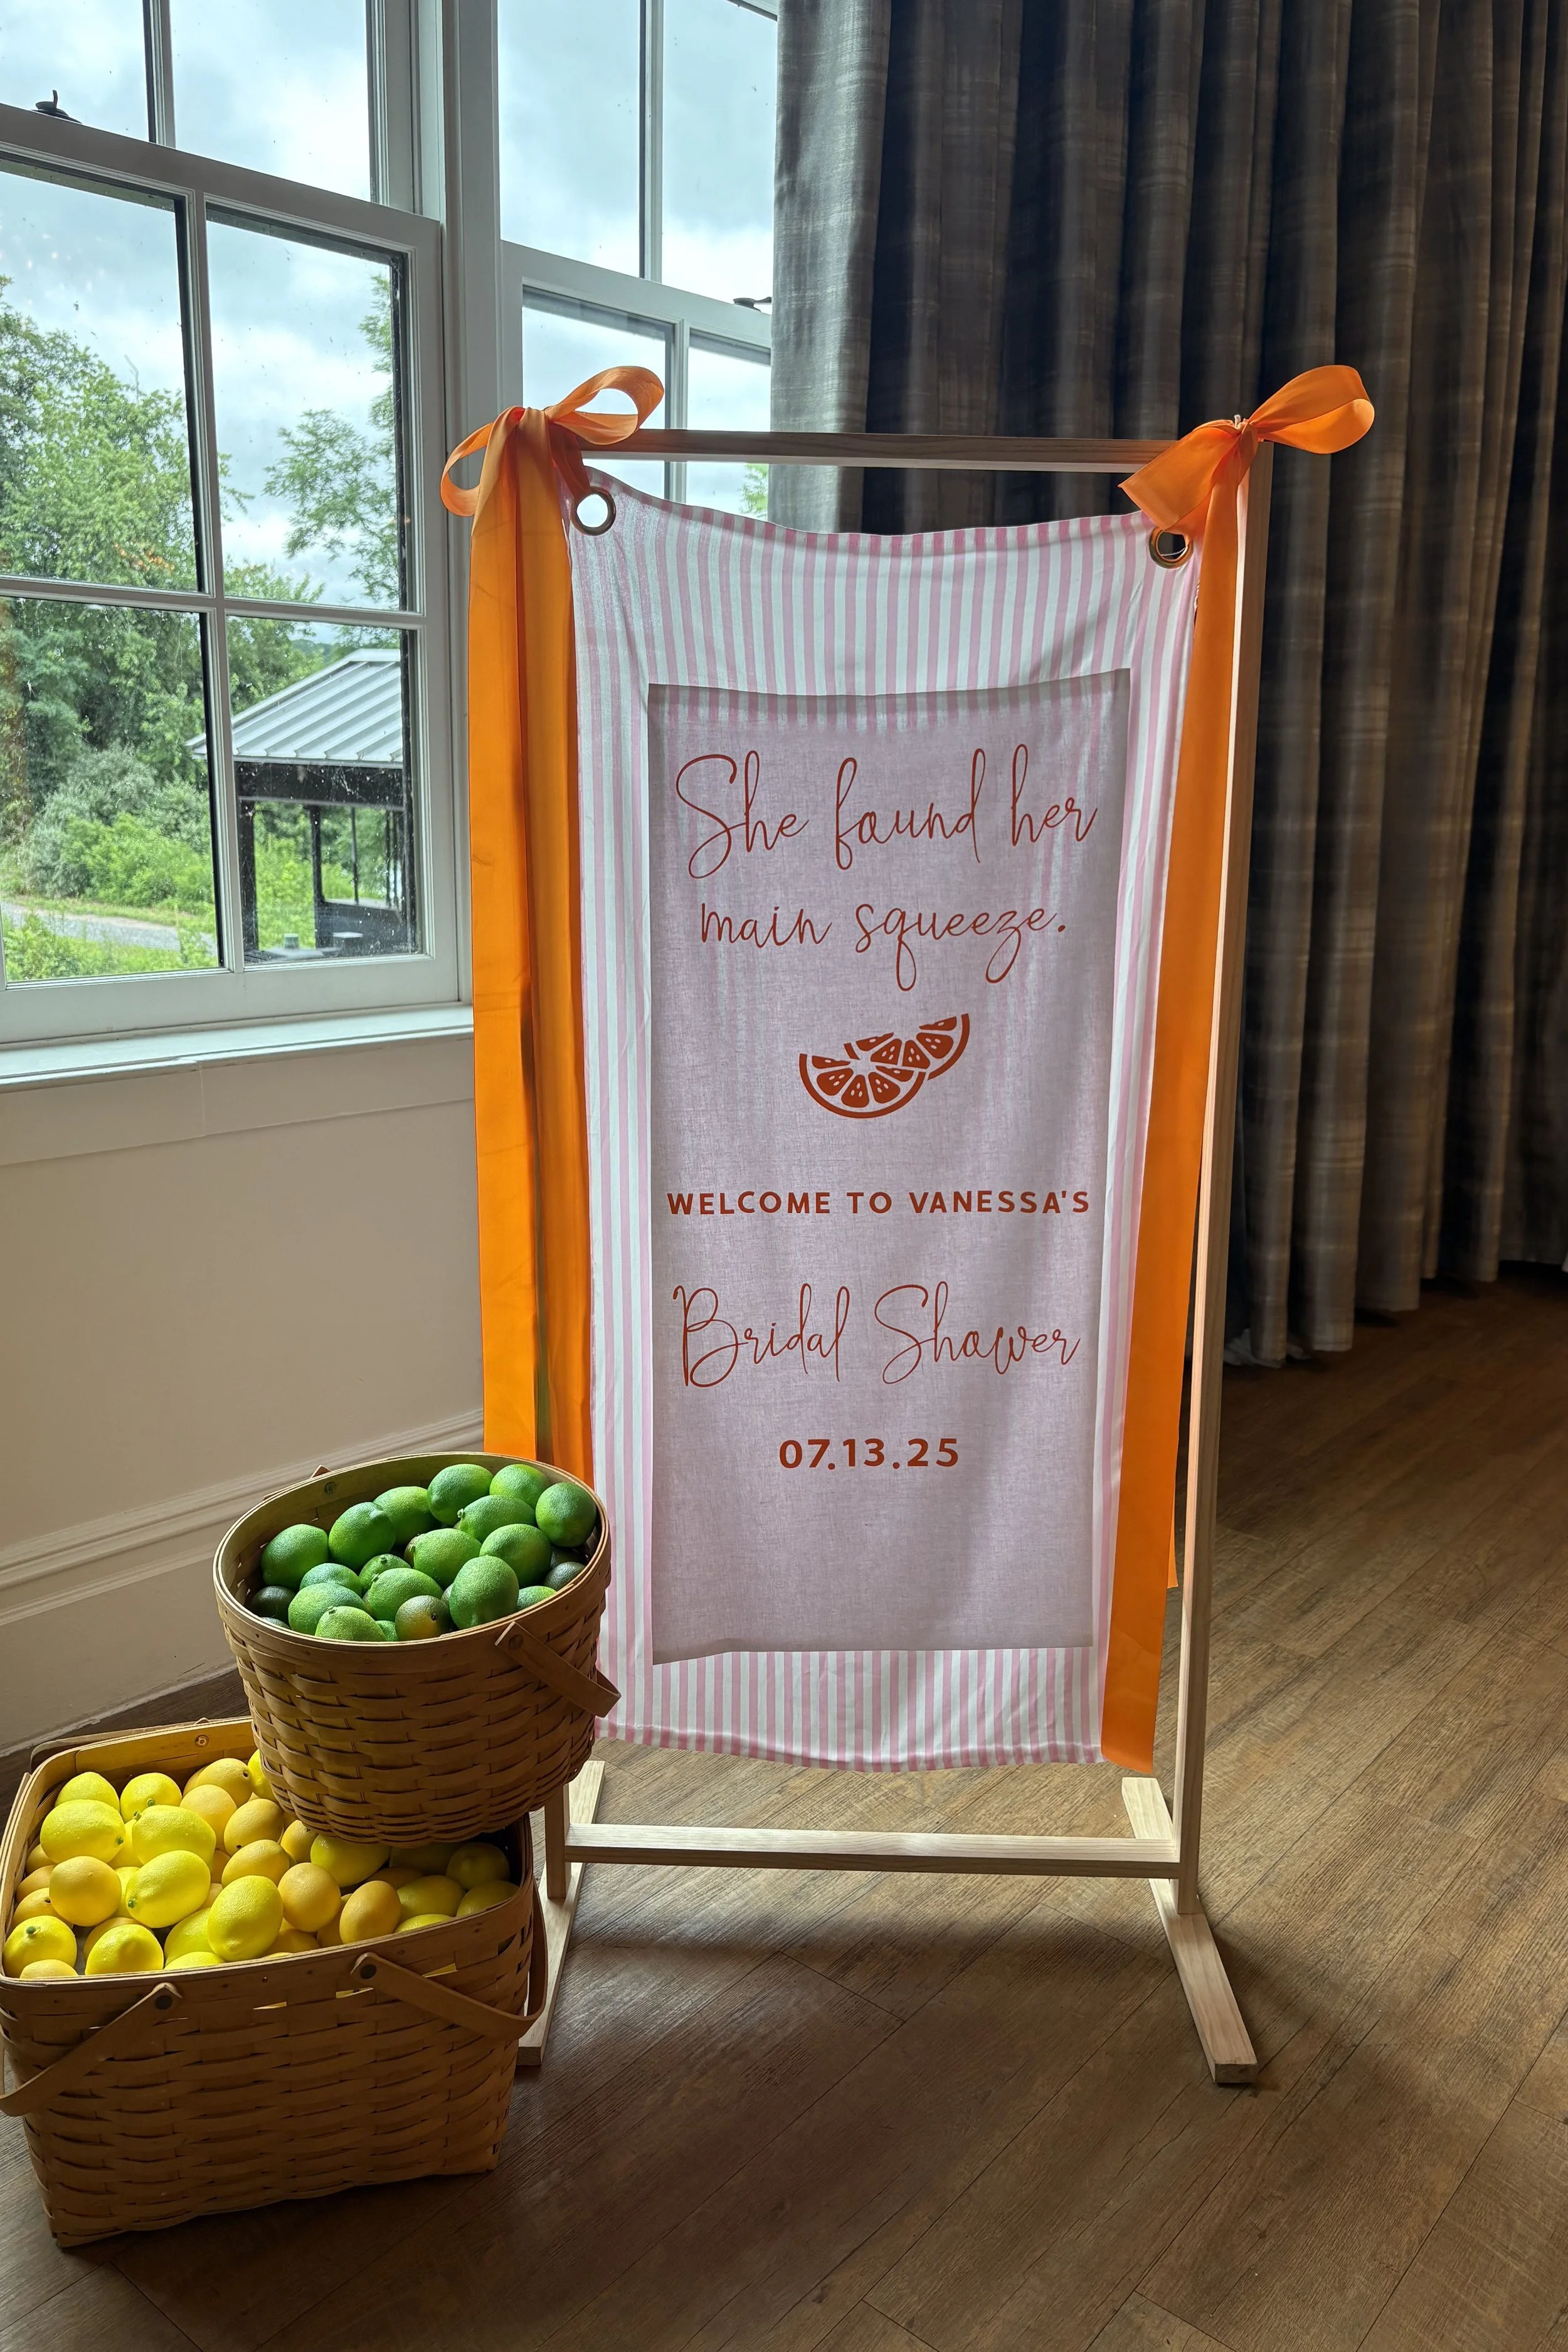 She found her
main squeeze.
WELCOME TO VANESSA'S
Bridal Shower
07.13.25